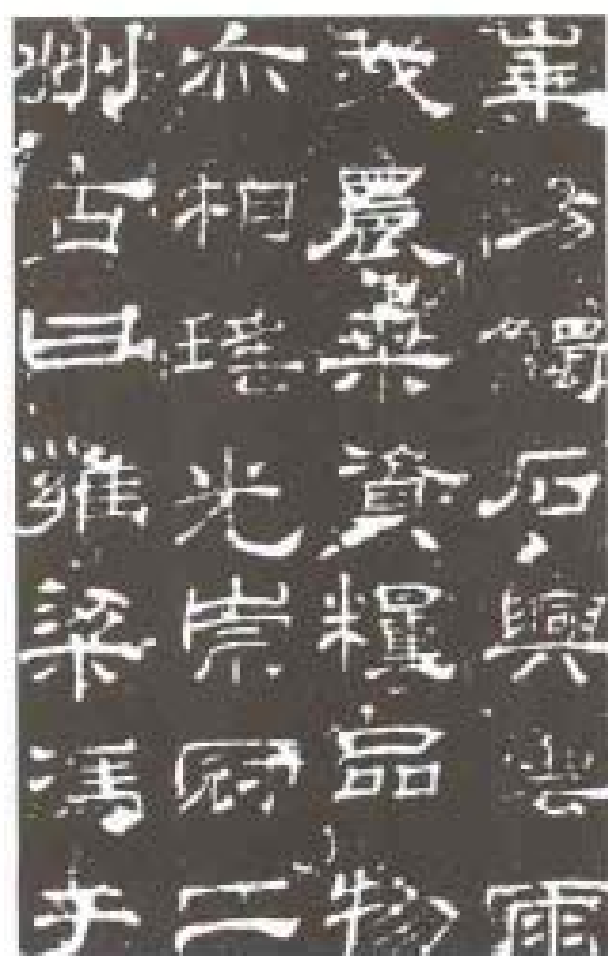 華陽觸石興雲雨
我農桑資糧品物
亦相瑤光崇冠二
州古曰雍梁馮于